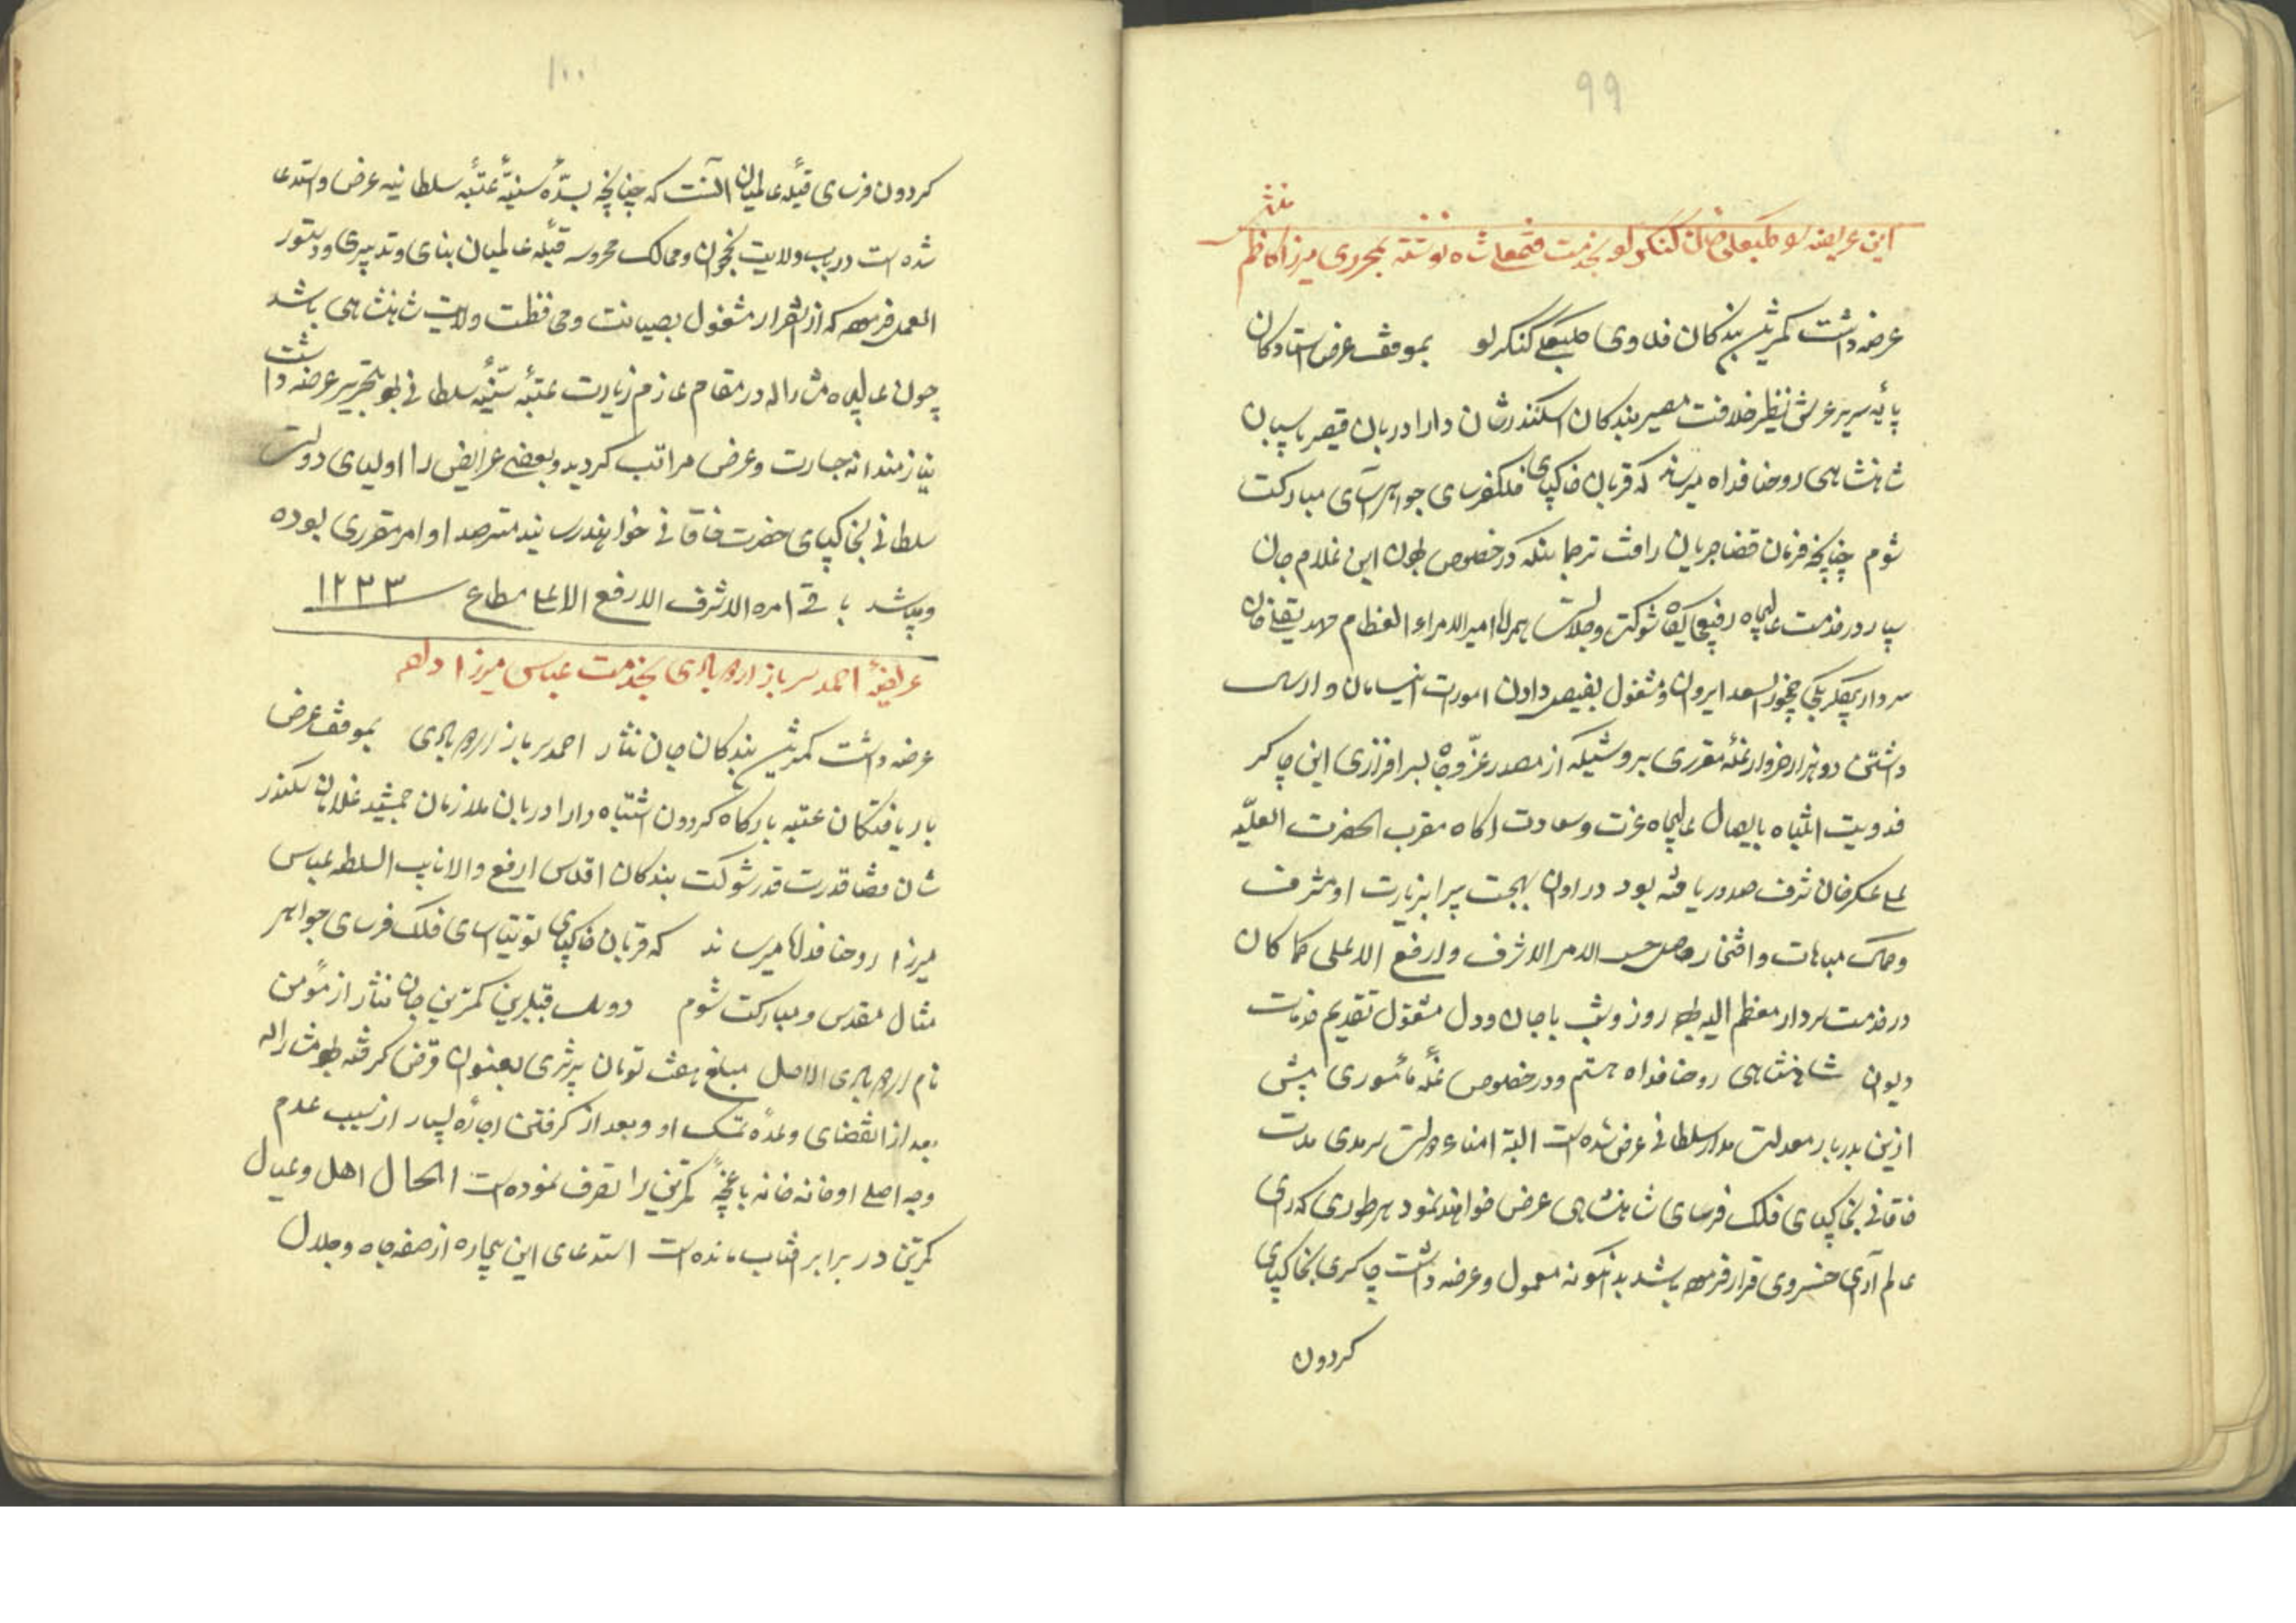 ۹۹
این عریضه کلبعلی خان کنکرلو بخدمت فتحعلی شاه نوشته بمحرری میرزا کاظم
عرضه داشت کمترین بندکان فدوی کلبعلی کنکرلو بموقف عرض استادکان
پایهٔ سریر عرش نظیر خلافت مصیر بندکان اسکندرشان دارا دربان قیصر پاسبان
شاهنشاهی روحنا فداه میرساند که قربان خاکپای فلکفرسای جواهرآسای مبارکت
شوم چنانچه فرمان قضا جریان در خصوص بودن این غلام جان
سپار در خدمت عالیجاه رفیعجایکاه شوکت و جلالت همراه امیرالامراء العظام
سردار بیکلربیکی چخورالسعد ایروان و مشغول بفیصل دادن امورات
داشتن دو هزار خروار غلهٔ مقرری بر وشیکه از مصدر عزّ و جاه بسرافرازی این چاکر
فدویت انتباه بایصال عالیجاه عزت و سعادت اکاه مقرب الحضرت العلیّه
علی عسکرخان شرف صدور یافته بود در اوان بهجت پیرا بزیارت او مشرف
و مباهات و افتخار حاصل حسب الامر الاشرف وارفع الاعلی کما کان
در خدمت سردار معظم الیه بوده روز و شب با جان و دل مشغول تقدیم خدمات
دیوان شاهنشاهی روحنا فداه هستم و در خصوص غله مأموری پیش
ازین بدربار معدلت مدار سلطانی عرض شده است البته امناء دولت سرمدی مدت
خاقانی بخاکپای فلک فرسای شاهنشاهی عرض خواهند نمود هر طوری که رای
عالم آرای خسروی قرار فرموده باشد بدانکونه معمول و عرضه داشت چاکری بخاکپای
کردون
۱۰۰
کردون فرسای قبلهٔ عالمیان آنست که چنانچه بسدّهٔ سنیّهٔ عتبهٔ سلطانیه عرض و استدعا
شده است در باب ولایت نخجوان و ممالک محروسه قبلهٔ عالمیان بنای و تدبیری و دستور
العمل فرموده که از آنقرار مشغول بصیانت و محافظت ولایت شاهنشاهی باشد
چون عالیجاه مشارالیه در مقام عازم زیارت عتبهٔ سنیّهٔ سلطانی بود بتحریر عرضه داشت
نیازمندانه جسارت و عرض مراتب کردید و بعضی عرایض را اولیای دولت
سلطانی بخاکپای حضرت خاقانی خواهند رسانید مترصد اوامر مقرری بوده
و میباشد باقی امره الاشرف الارفع الاعلی مطاع ۱۲۳۳
عریضهٔ احمد سرباز اردوبادی بخدمت عباس میرزا داده
عرضه داشت کمترین بندکان جان نثار احمد سرباز اردوبادی بموقف عرض
باریافتکان عتبه بارکاه کردون اشتباه دارا دربان ملازمان جمشید غلامان سکندر
شان قضا قدرت قدر شوکت بندکان اقدس ارفع والا نایب السلطه عباس
میرزا روحنا فداه میرساند که قربان خاکپای توتیاسای فلک فرسای جواهر
مثال مقدس و مبارکت شوم دو سال قبل این کمترین جان نثار از مؤمن
نام اردوبادی الاصل مبلغ هفت تومان پیشری بعنوان قرض کرفته بود مشارالیه
بعد از انقضای وعدهٔ تمسک او و بعد از کرفتن اجارهٔ بسیار از سبب عدم
وجه اصلی او خانه خانه باغچهٔ کمترین را تصرف نموده است الحال اهل و عیال
کمترین در برابر افتاب مانده است استدعای این بیچاره از صفه جاه و جلال